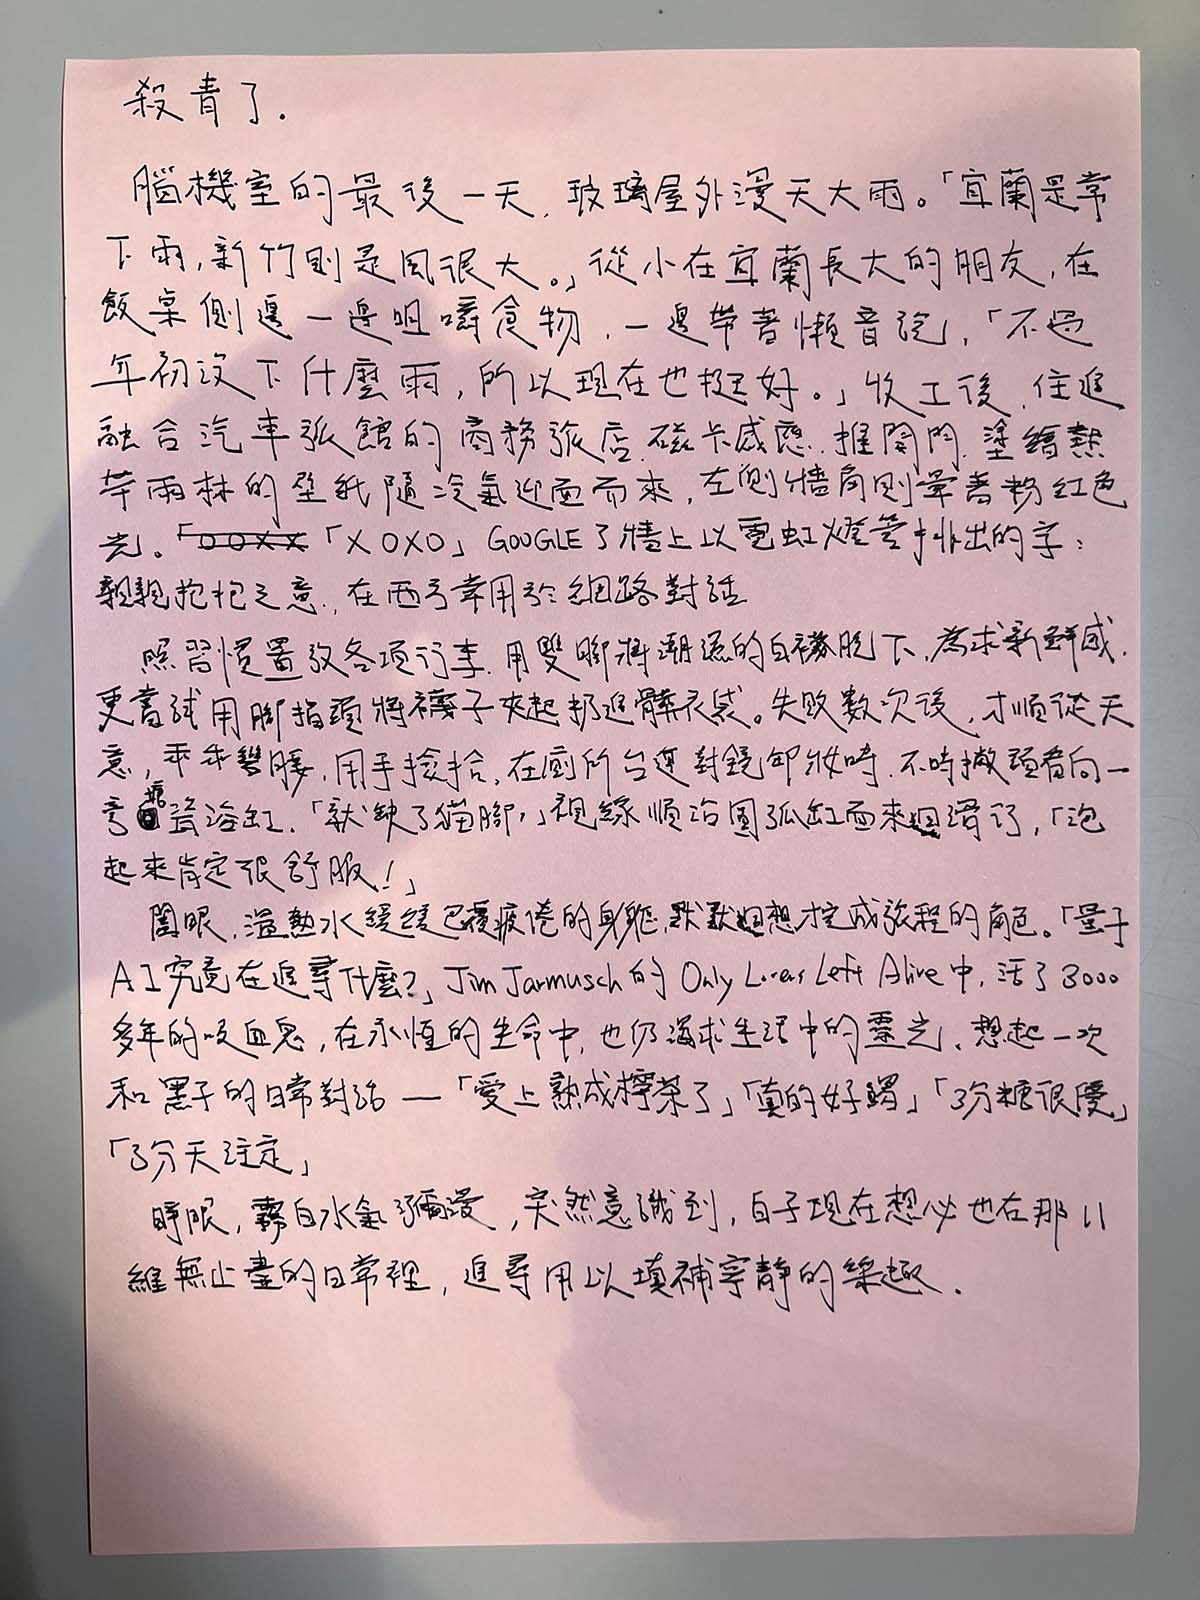 殺青了.
腦機室的最後一天,玻璃屋外漫天大雨。「宜蘭是常
下雨,新竹則是風很大。」從小在宜蘭長大的朋友,在
飯桌側邊一邊咀嚼食物,一邊帶著懶音說,「不過
年初沒下什麼雨,所以現在也挺好。」收工後,住進
融合汽車旅館的商務旅店,磁卡感應,推開門,塗繪熱
帶雨林的壁紙隨冷氣迎面而來,左側牆角則暈著粉紅色
光。「XOXO」GOOGLE了牆上以霓虹燈管排出的字:
親親抱抱之意,在西方常用於網路對話
照習慣置放各項行李,用雙腳將潮濕的白襪脫下,為求新鮮感,
更嘗試用腳指頭將襪子夾起扔進髒衣袋。失敗數次後,才順從天
意,乖乖彎腰,用手撿拾,在廁所台邊對鏡卸妝時,不時撇頭看向一
旁瓷浴缸,「就缺了貓腳,」視線順沿圓弧缸面來回滑行,「泡
起來肯定很舒服!」
闔眼,溫熱水緩緩包覆疲倦的身軀,默默回想才完成旅程的角色。「量子
AI究竟在追尋什麼?」Jim Jarmusch的Only Lovers Left Alive中,活了3000
多年的吸血鬼,在永恆的生命中,也仍渴求生活中的靈光、想起一次
和黑子的日常對話—「愛上熟成檸茶了」「真的好喝」「3分糖很優」
「3分天注定」
睜眼,霧白水氣瀰漫,突然意識到,白子現在想必也在那11
維無止盡的日常裡,追尋用以填補寧靜的樂趣.